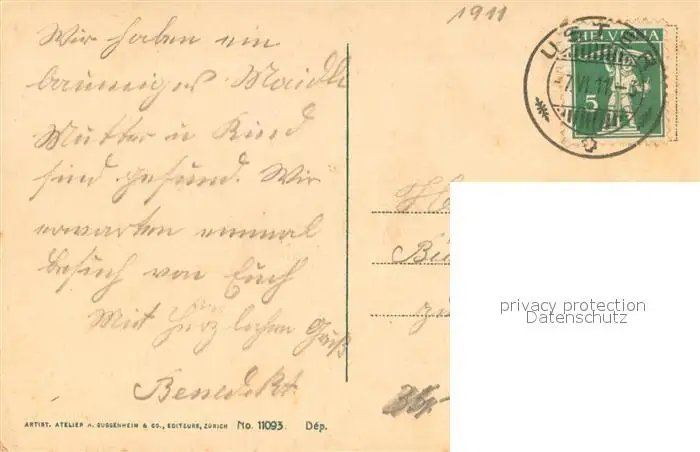 1911
Wir haben ein
bauniges Maidli
Mutter u Kind
sind gesund. Wir
erwarten einmal
besuch von Euch
Mit herzlichen Gruß
Benedikt
USTER
-7.VI.11.-5
HELVETIA
5
privacy protection
Datenschutz
ARTIST. ATELIER H. GUGGENHEIM & CO., EDITEURS, ZÜRICH No. 11093. Dép.